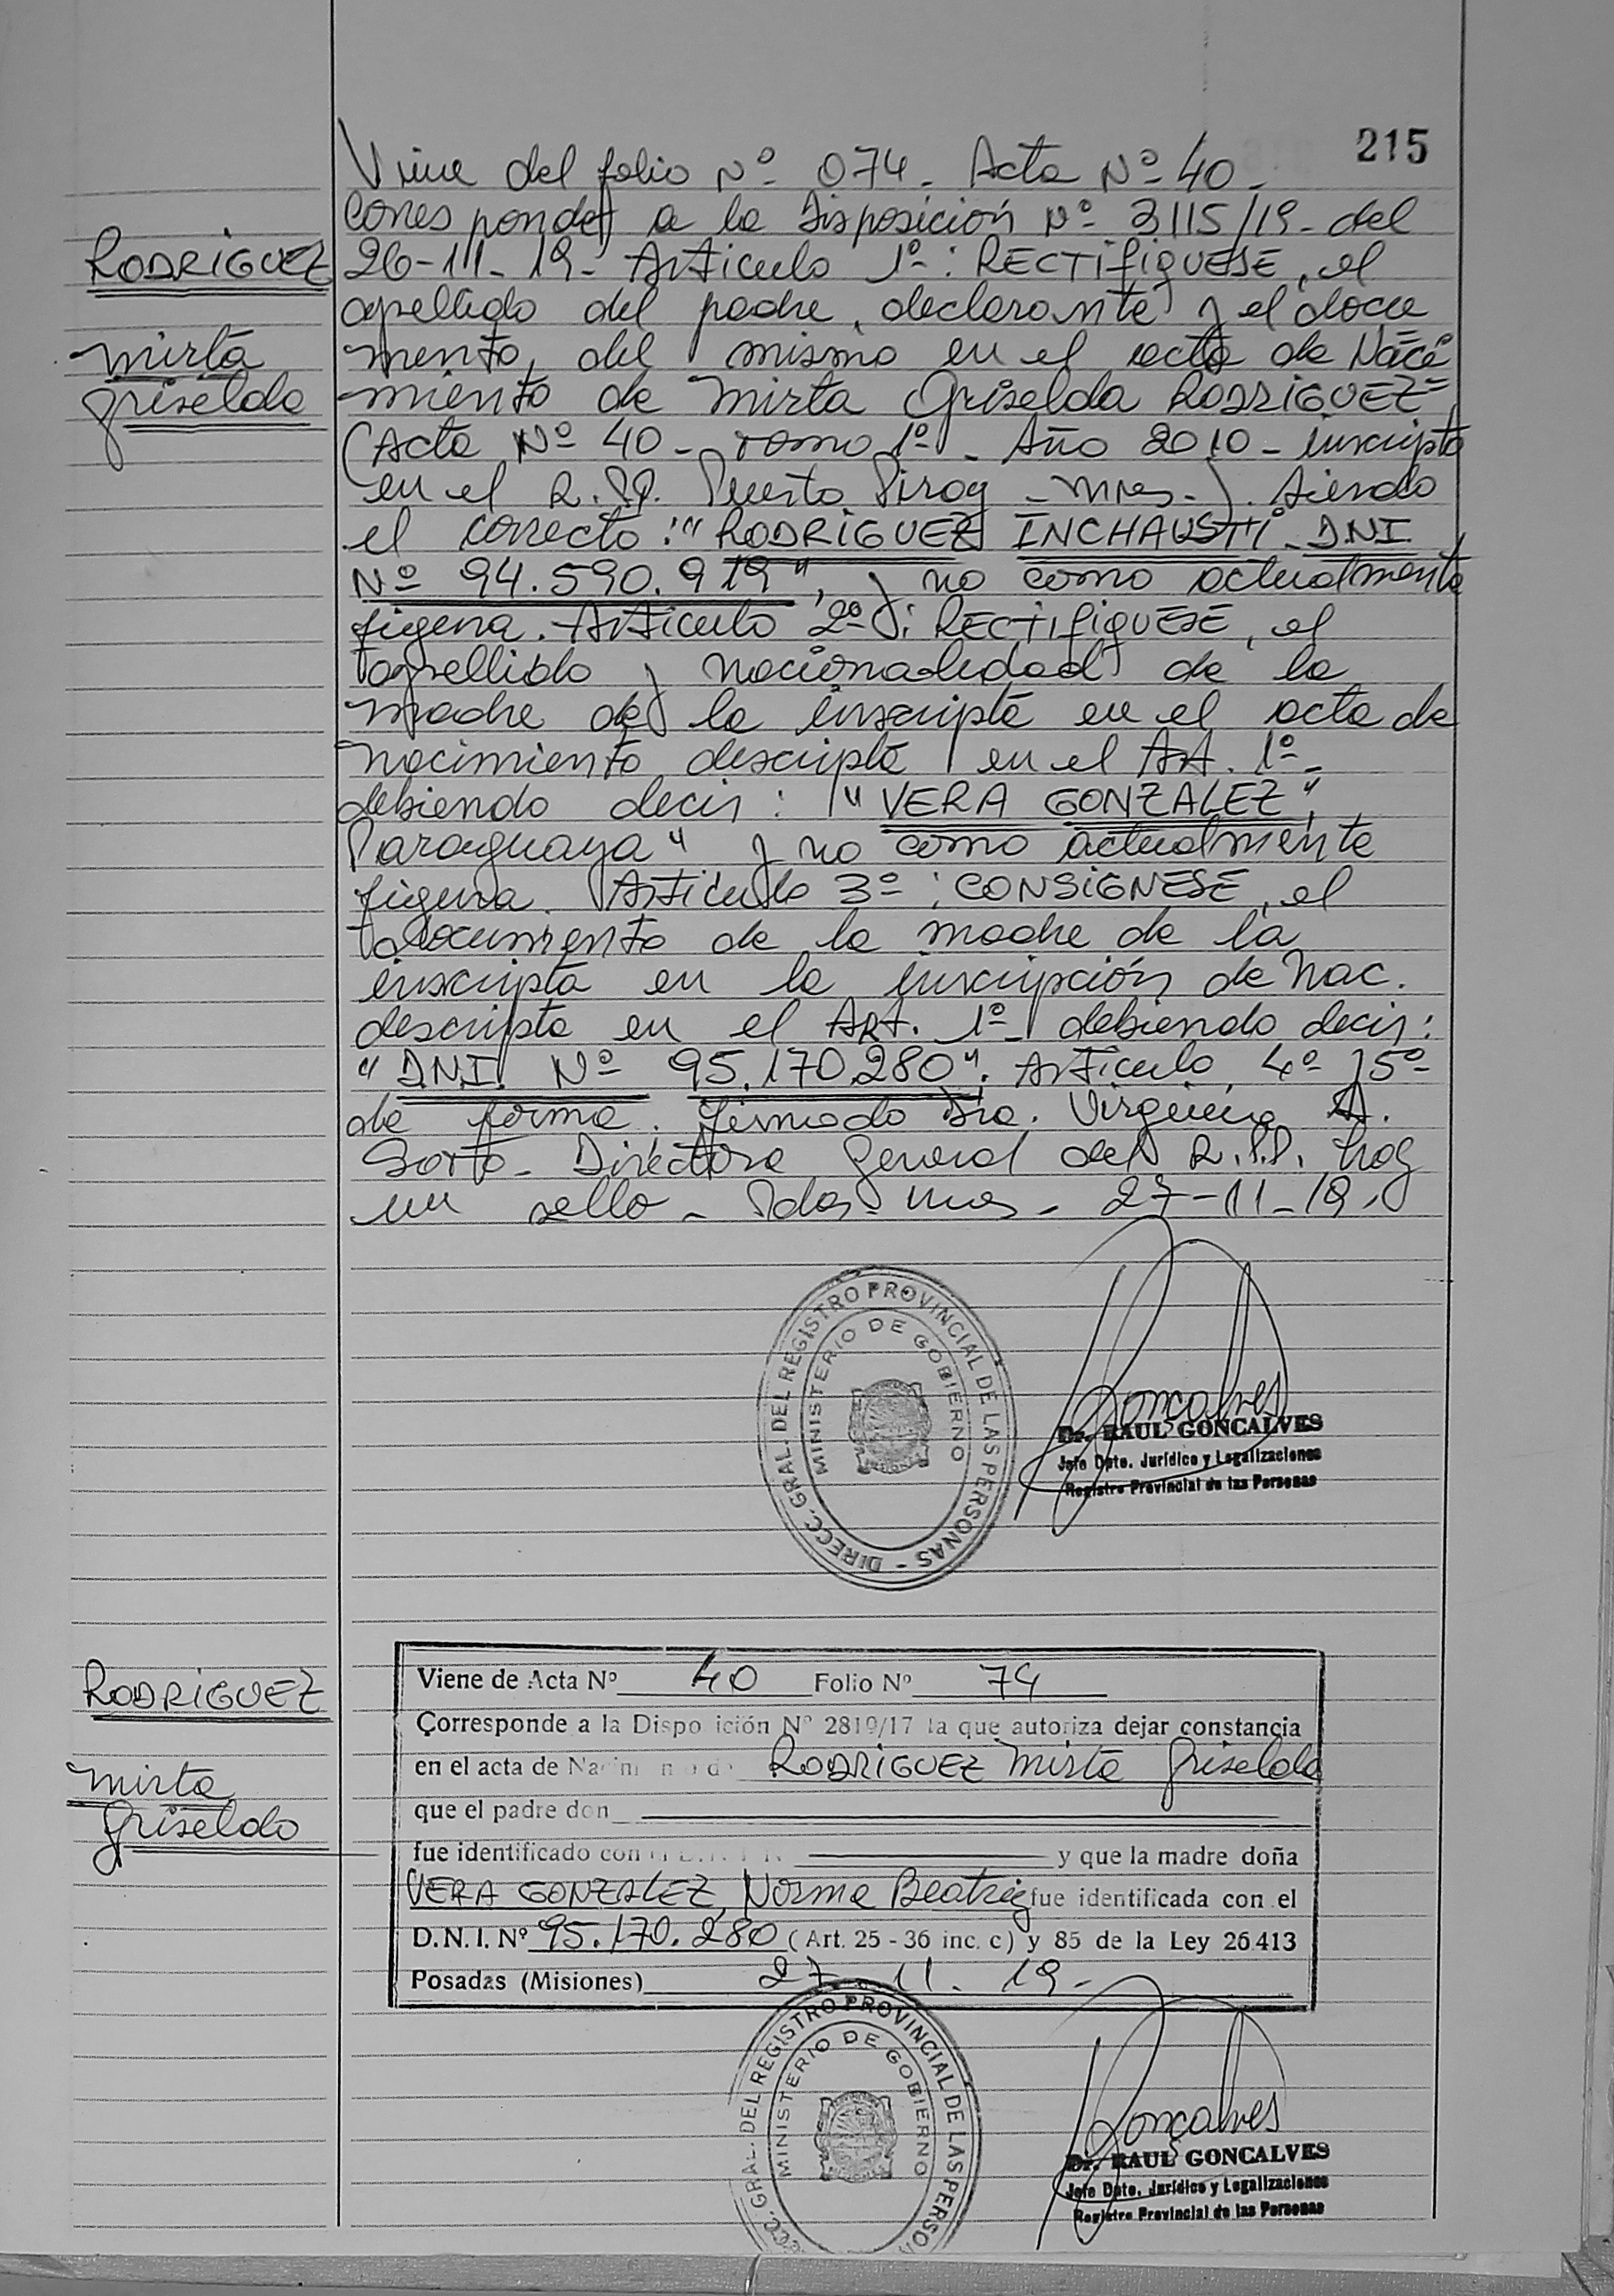 215
Viene del folio Nº 074 - Acta Nº 40 -
Corresponde a la Disposición Nº 3115/19 - del
RODRIGUEZ
26-11-19 - Artículo 1º: RECTIFIQUESE, el
apellido del padre, declarante y el docu
Mirta
mento, del mismo en el acta de Naci
Griselda
miento de Mirta Griselda RODRIGUEZ
(Acta Nº 40 - Tomo 1º - Año 2010 - inscripta
en el R.P.P. Puerto Piray - Mnes.-). Siendo
el correcto: "RODRIGUEZ INCHAUSTI - DNI
Nº 94.590.919", y no como actualmente
figura. Artículo 2º: RECTIFIQUESE, el
apellido y nacionalidad de la
madre de la inscripta en el acta de
nacimiento descripta en el Art. 1º -
debiendo decir: "VERA GONZALEZ",
Paraguaya" y no como actualmente
figura. Artículo 3º: CONSIGNESE, el
documento de la madre de la
inscripta en la inscripción de Nac.
descripta en el Art. 1º debiendo decir:
"DNI. Nº 95.170.280". Artículo 4º y 5º
de forma. Firmado Dra. Virginia A.
Directora General del R.P.P. hay
un sello - Pdas - Mnes - 27-11-19.
DIRECC. GRAL. DEL REGISTRO PROVINCIAL DE LAS PERSONAS -
MINISTERIO DE GOBIERNO
Goncalves
Dr. RAUL GONCALVES
Jefe Dpto. Jurídico y Legalizaciones
Registro Provincial de las Personas
RODRIGUEZ
Mirta
Griselda
Viene de Acta Nº 40 Folio Nº 74
Corresponde a la Dispo ición Nº 2819/17 la que autoriza dejar constancia
en el acta de RODRIGUEZ Mirta Griselda
que el padre don
fue identificado con y que la madre doña
VERA GONZALEZ, Norma Beatriz fue identificada con el
D.N.I. Nº 95.170.280 (Art. 25 - 36 inc. c) y 85 de la Ley 26413
Posadas (Misiones) 27-11-19-
CC. GRAL. DEL REGISTRO PROVINCIAL DE LAS PERSO
MINISTERIO DE GOBIERNO
Gonçalves
Dr. RAUL GONCALVES
Jefe Dpto. Jurídico y Legalizaciones
Registro Provincial de las Personas